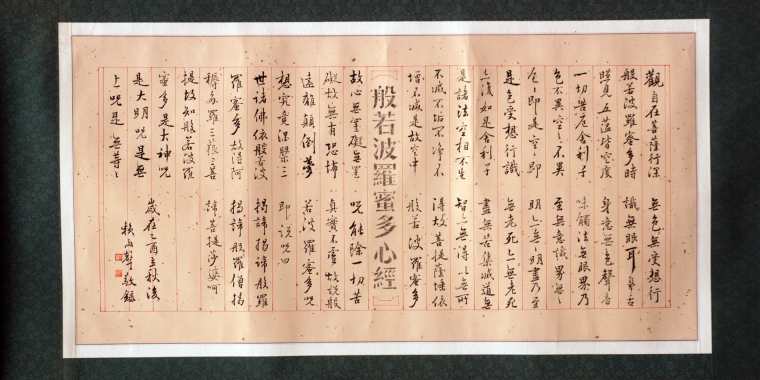 觀自在菩薩行深
般若波羅蜜多時
照見五蘊皆空度
一切苦厄舍利子
色不異空々不異
色々即是空々即
是色受想行識
亦復如是舍利子
是諸法空相不生
不滅不垢不淨不
增不減是故空中
無色無受想行
識無眼耳鼻舌
身意無色聲香
味觸法無眼界乃
至無意識界無々
明亦無々明盡乃至
無老死亦無老死
盡無苦集滅道無
智亦無得以無所
得故菩提薩埵依
般若波羅蜜多
般若波羅蜜多心經
故心無罣礙無罣
礙故無有恐怖
遠離顛倒夢
想究竟涅槃三
世諸佛依般若波
羅蜜多故得阿
耨多羅三藐三菩
提故知般若波羅
蜜多是大神咒
是大明咒是無
上咒是無等々
咒能除一切苦
真實不虛故說般
若波羅蜜多咒
即說咒曰
揭諦揭諦般羅
揭諦般羅僧揭
諦菩提莎婆呵
歲在乙酉立秋後
敬錄